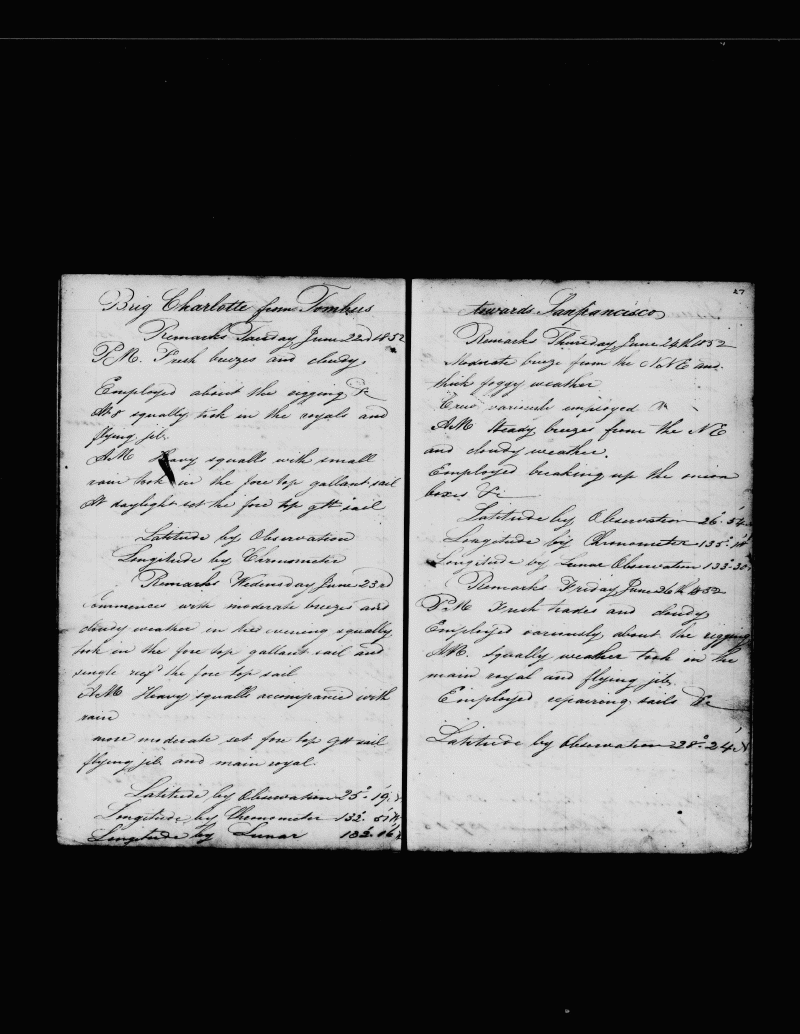 Brig Charlotte from Tombes
Remarks Tuesday June 22nd 1852
P.M. Fresh breezes and cloudy
Employed about the rigging &c
At 8 squally took in the royals and
flying jib.
A.M Heavy squalls with small
rain took in the fore top gallant sail
At daylight set the fore top gtt sail
Latitude by Observation
Longitude by Chronometer
Remarks Wedensday June 23rd
Commences with moderate breezes and
cloudy weather in the evening squally
took in the fore top gallant sail and
single reefd the fore top sail.
A.M Heavy squalls accompanie with
rain
more moderate set fore top gtt sail
flying jib. and main royal.
Latitude by Observation 25°. 19.
Longitude by Chronometer 132°. 51' W
Longitude by Lunar 16'
27
towards Sanfrancisco
Remark Thursday June 24th 1852
Moderate breeze from the N N E and
thick foggy weather
Crew variously employed
A.M Steady breezes from the N E
and cloudy weather.
Employed breaking up the onion
boxes &c
Latitude by Observation 26°. 54
Longitude by Chronometer 135°. 18'
Longitude by Lunar Observation 133°. 30
Remarks Friday June 1852
P.M Fresh trades and cloudy
Employed variously about the rigging
A.M. Squally weather took in the
main royal and flying jib.
Employed repairing sails &c
Latitude by Observation 28°. 24' N